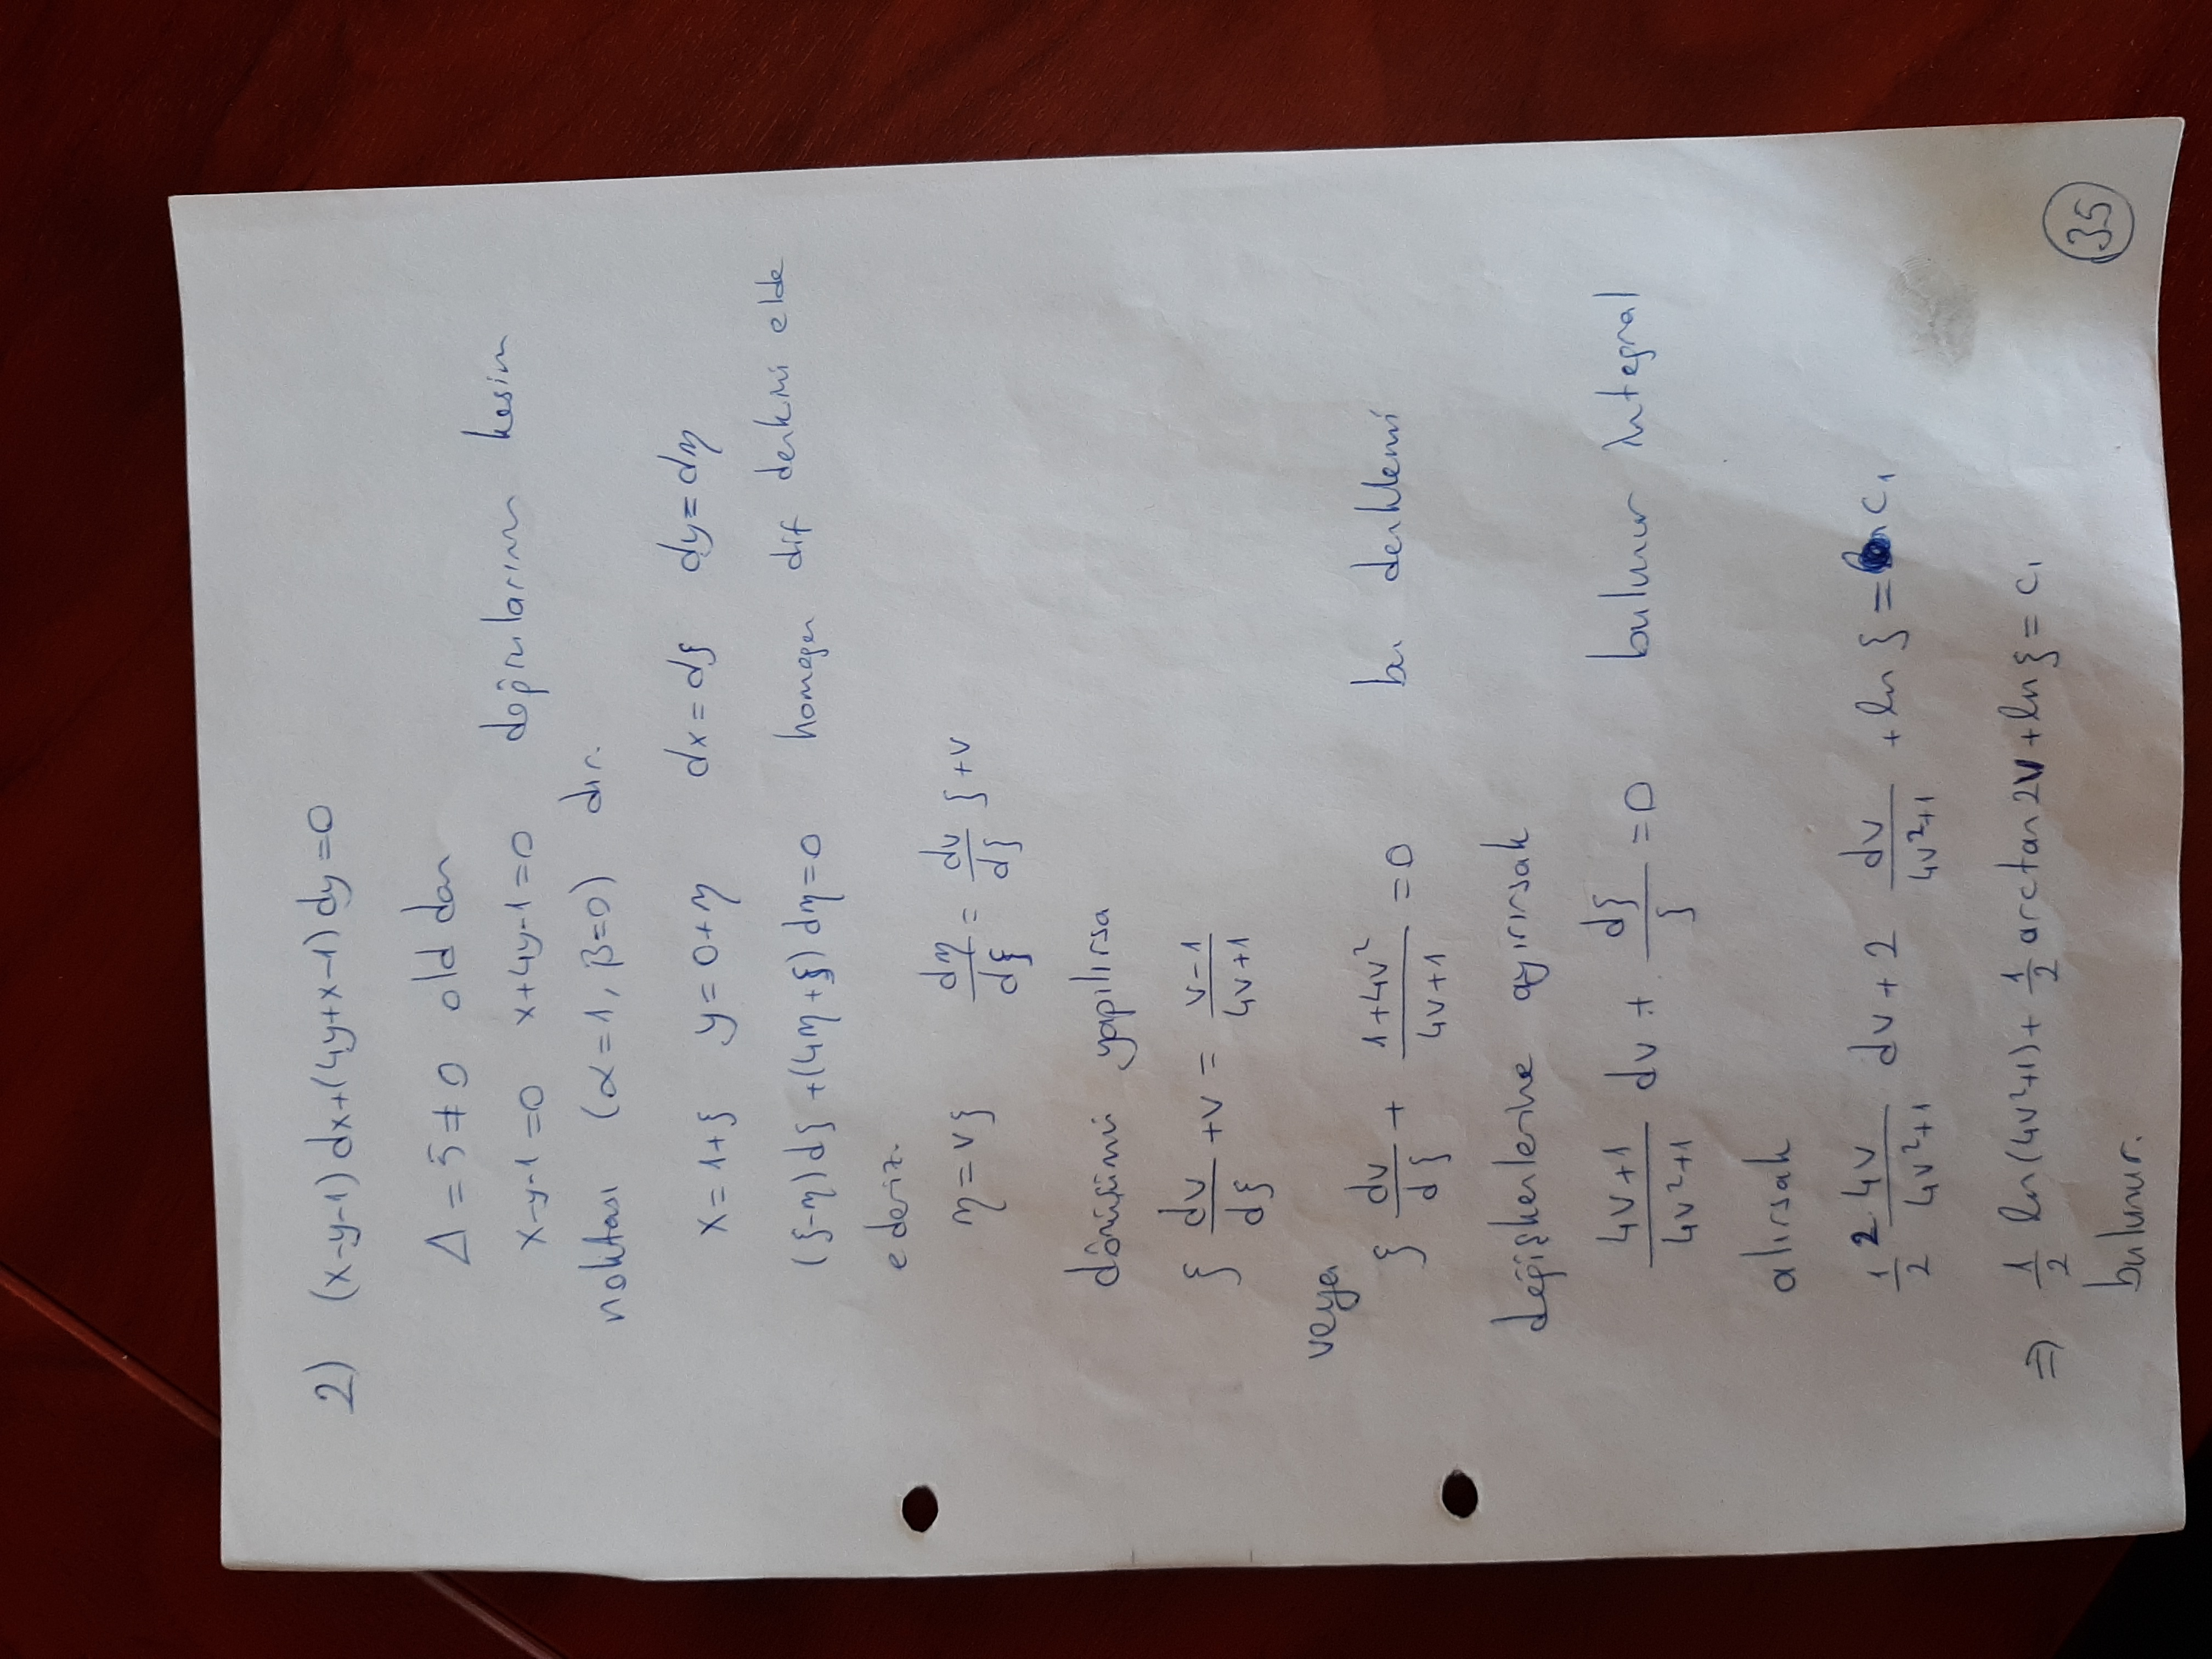 2) (x-y-1) dx+(4y+x-1) dy=0
Δ = 5 ≠ 0 old dan
x-y-1=0 x+4y-1=0 doğrularının kesim
noktası (α=1, β=0) dır.
x = 1+ξ y = 0+η dx = dξ dy = dη
(ξ-η) dξ +(4η+ξ) dη=0 homogen dif denkmi elde
ederiz.
η = vξ dη/dξ = dv/dξ ξ+v
dönüşümü yapılırsa
ξ dv/dξ +v = v-1/4v+1
veya
ξ dv/dξ + 1+4v²/4v+1 = 0 bu denklemi
değişkenlerine ayırırsak
4v+1/4v²+1 dv + dξ/ξ = 0 bulunur integral
alırsak
1/2 2.4v/4v²+1 dv + 2 dv/4v²+1 + ln ξ = c₁
⇒ 1/2 ln(4v²+1)+ 1/2 arctan 2v + ln ξ = c₁
bulunur.
35